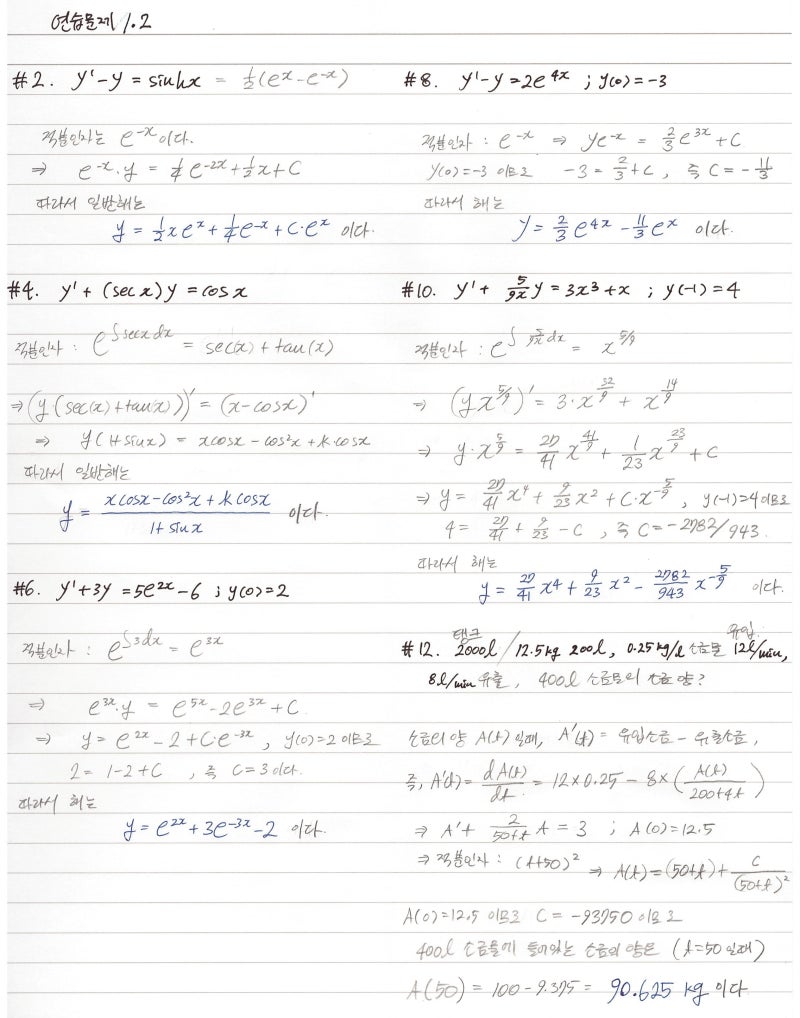 연습문제 1.2
#2. y' - y = sinhx = ½(e^x - e^-x)
적분인자는 e^-x 이다.
⇒ e^-x · y = ¼e^-2x + ½x + C
따라서 일반해는
y = ½xe^x + ¼e^-x + C·e^x 이다.
#4. y' + (sec x)y = cos x
적분인자 : e^∫secx dx = sec(x) + tan(x)
⇒ (y·(sec(x) + tan(x)))' = (x - cosx)'
⇒ y(1+sinx) = xcosx - cos²x + k·cosx
따라서 일반해는
y = (xcosx - cos²x + kcosx)/(1+sinx) 이다.
#6. y' + 3y = 5e^2x - 6 ; y(0) = 2
적분인자 : e^∫3dx = e^3x
⇒ e^3x · y = e^5x - 2e^3x + C
⇒ y = e^2x - 2 + C·e^-3x , y(0)=2 이므로
2 = 1 - 2 + C , 즉 C = 3 이다.
따라서 해는
y = e^2x + 3e^-3x - 2 이다.
#8. y' - y = 2e^4x ; y(0) = -3
적분인자 : e^-x ⇒ ye^-x = ⅔e^3x + C
y(0) = -3 이므로 -3 = ⅔ + C , 즉 C = -11/3
따라서 해는
y = ⅔e^4x - 11/3 e^x 이다.
#10. y' + 5/9x y = 3x³ + x ; y(-1) = 4
적분인자 : e^∫5/9x dx = x^5/9
⇒ (yx^5/9)' = 3·x^32/9 + x^14/9
⇒ y·x^5/9 = 27/41 x^41/9 + 1/23 x^23/9 + C
⇒ y = 27/41 x⁴ + 9/23 x² + C·x^-5/9 , y(-1)=4 이므로
4 = 27/41 + 9/23 - C , 즉 C = -2782/943.
따라서 해는
y = 27/41 x⁴ + 9/23 x² - 2782/943 x^-5/9 이다.
#12. 탱크 2000l / 12.5kg 200l, 0.25kg/l 소금물 유입 12l/min,
8l/min 유출, 400l 소금물의 소금 양?
소금의 양 A(t) 일때, A'(t) = 유입소금 - 유출소금,
즉, A'(t) = dA(t)/dt = 12×0.25 - 8×(A(t)/200+4t)
⇒ A' + 2/50+t A = 3 ; A(0) = 12.5
⇒ 적분인자 : (t+50)² ⇒ A(t) = (50+t) + C/(50+t)²
A(0) = 12.5 이므로 C = -93750 이므로
400l 소금물에 들어있는 소금의 양은 (t=50 일때)
A(50) = 100 - 9.375 = 90.625 kg 이다